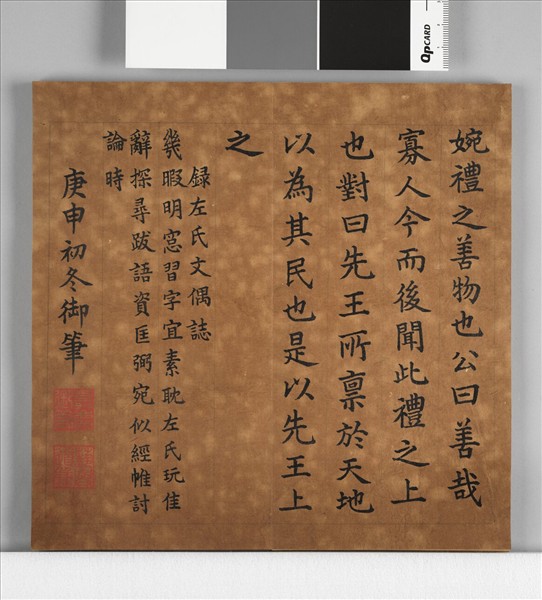 婉禮之善物也公曰善哉
寡人今而後聞此禮之上
也對曰先王所稟於天地
以為其民也是以先王上
之
録左氏文偶誌
幾暇明窓習字宜素耽左氏玩佳
辭探尋跋語資匡弼宛似經帷討
論時
庚申初冬御筆
QPCARD